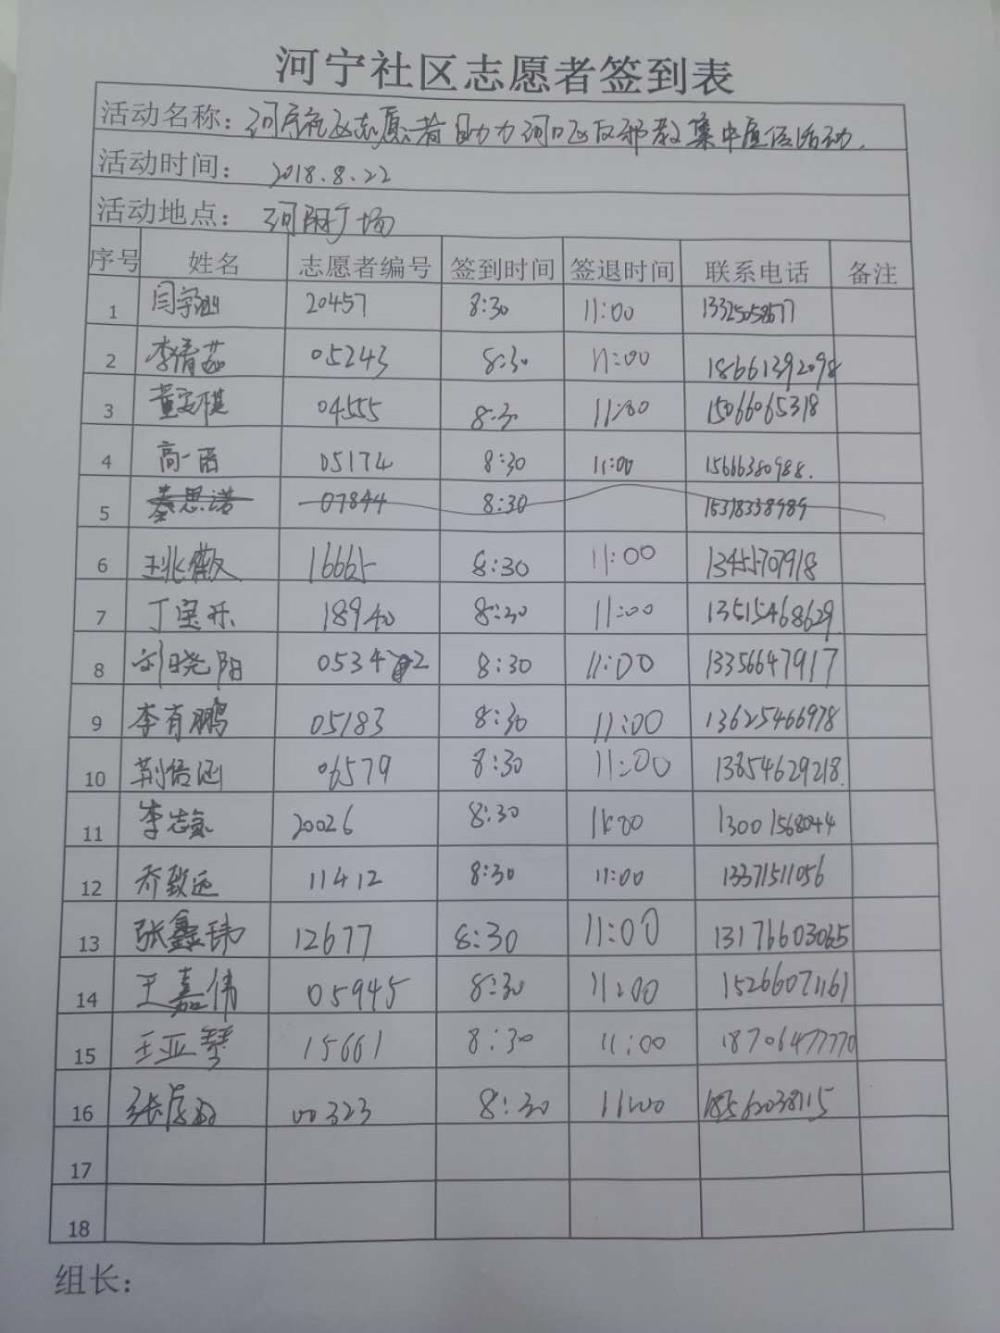 河宁社区志愿者签到表
活动名称：河宁社区志愿者助力河口区反邪教集中宣传活动.
活动时间：2018.8.22
活动地点：河附广场
序号 姓名 志愿者编号 签到时间 签退时间 联系电话 备注
1 闫学 20457 8:30 11:00 13325058677
2 李倩茹 05243 8:30 11:00 18661392098
3 董安琪 04555 8:30 11:00 15066065318
4 高一 05174 8:30 11:00 15666380988.
5 秦思诺 07844 8:30 15318338989
6 王兆 16665 8:30 11:00 13455707918
7 丁宝乐 18940 8:30 11:00 13515468629
8 刘晓阳 0534 2 8:30 11:00 13356647917
9 李肖鹏 05183 8:30 11:00 13625466978
10 荆倍 06579 8:30 11:00 13854629218.
11 李志 20026 8:30 11:00 13001568044
12 乔致远 11412 8:30 11:00 13371511056
13 张鑫玮 12677 8:30 11:00 13176603065
14 王嘉伟 05945 8:30 11:00 15266071161
15 王亚琴 15661 8:30 11:00 18706477770
16 张 00323 8:30 11:00 18562038115
17
18
组长：